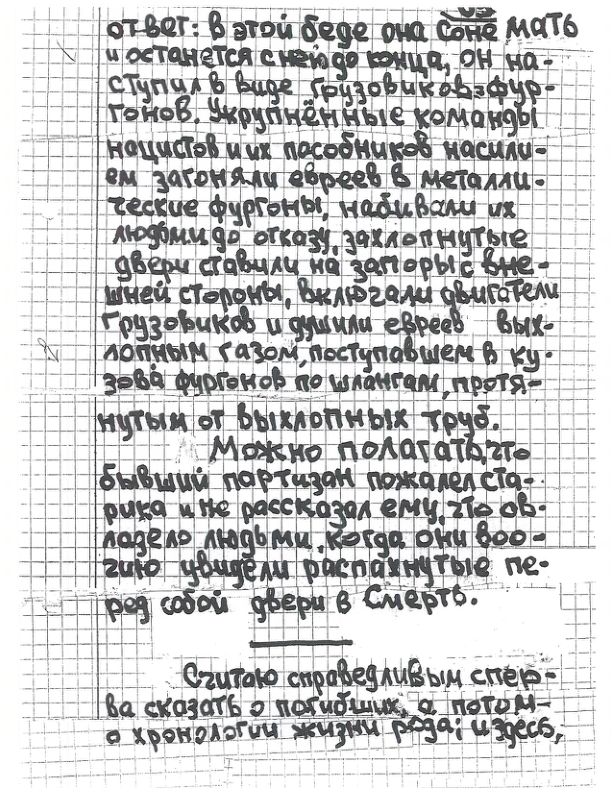 ответ: в этой беде она Соне мать
и останется с ней до конца, он на-
ступил в виде грузовиков-фур-
гонов. Укрупнённые команды
нацистов и их пособников насили-
ем загоняли евреев в металли-
ческие фургоны, набивали их
людьми до отказу, захлопнутые
двери ставили на запоры с вне-
шней стороны, включали двигатели
грузовиков и душили евреев вых-
лопным газом, поступавшем в ку-
зова фургонов по шлангам, протя-
нутым от выхлопных труб.
Можно полагать, что
бывший партизан пожалел ста-
рика и не рассказал ему, что ов-
ладело людьми, когда они воо-
чию увидели распахнутые пе-
ред собой двери в Смерть.
Считаю справедливым спер-
ва сказать о погибших, а потом-
о хронологии жизни рода; и здесь,